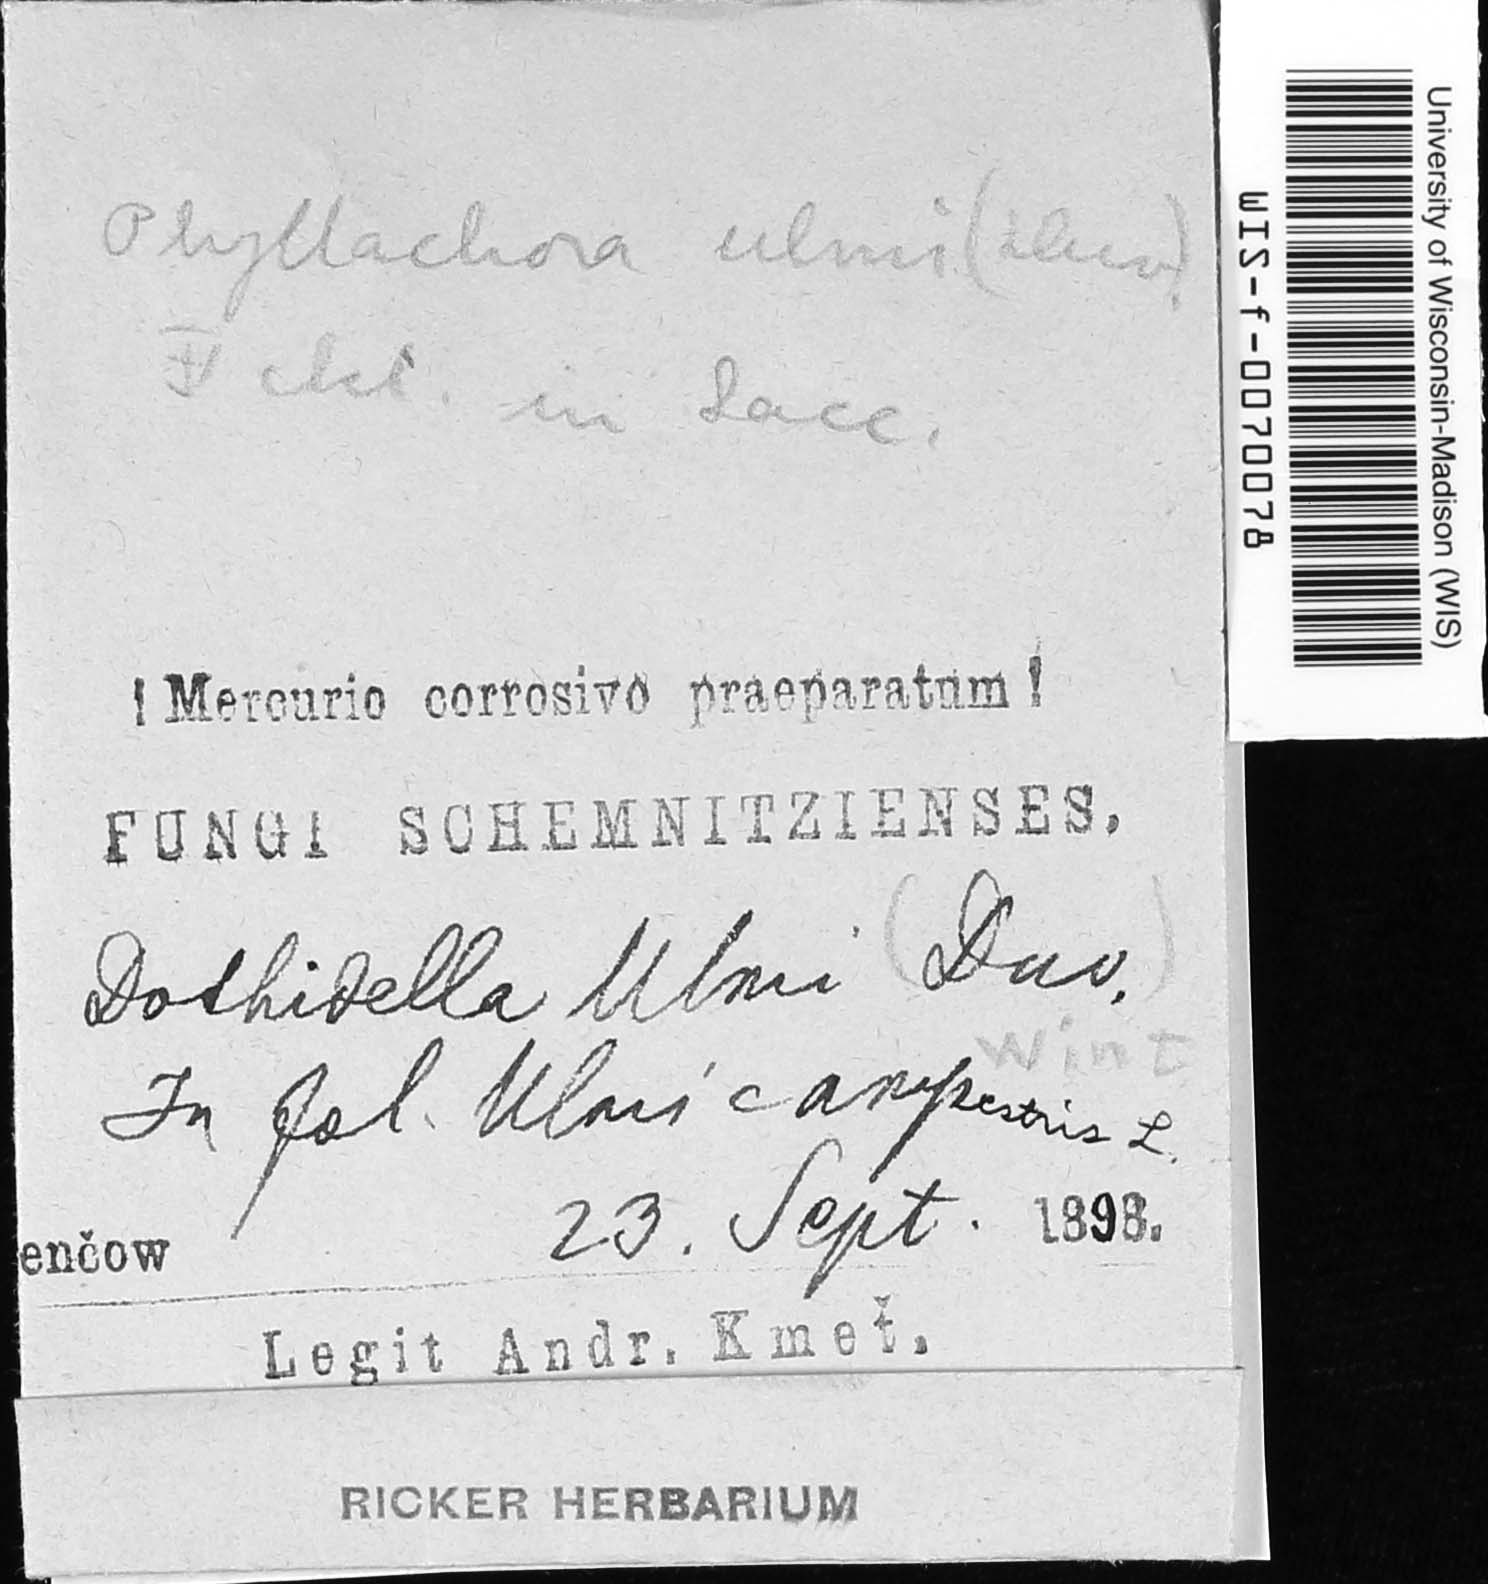 Phyllachora ulmi (Duv.)
Fckl. in Sacc.
! Mercurio corrosivo praeparatum !
FUNGI SCHEMNITZIENSES.
Dothidella Ulmi (Duv.)
Wint
In fol. Ulmi campestris L.
enčow 23. Sept. 1898.
Legit Andr. Kmeť.
RICKER HERBARIUM
University of Wisconsin-Madison (WIS)
WIS-f-0070078